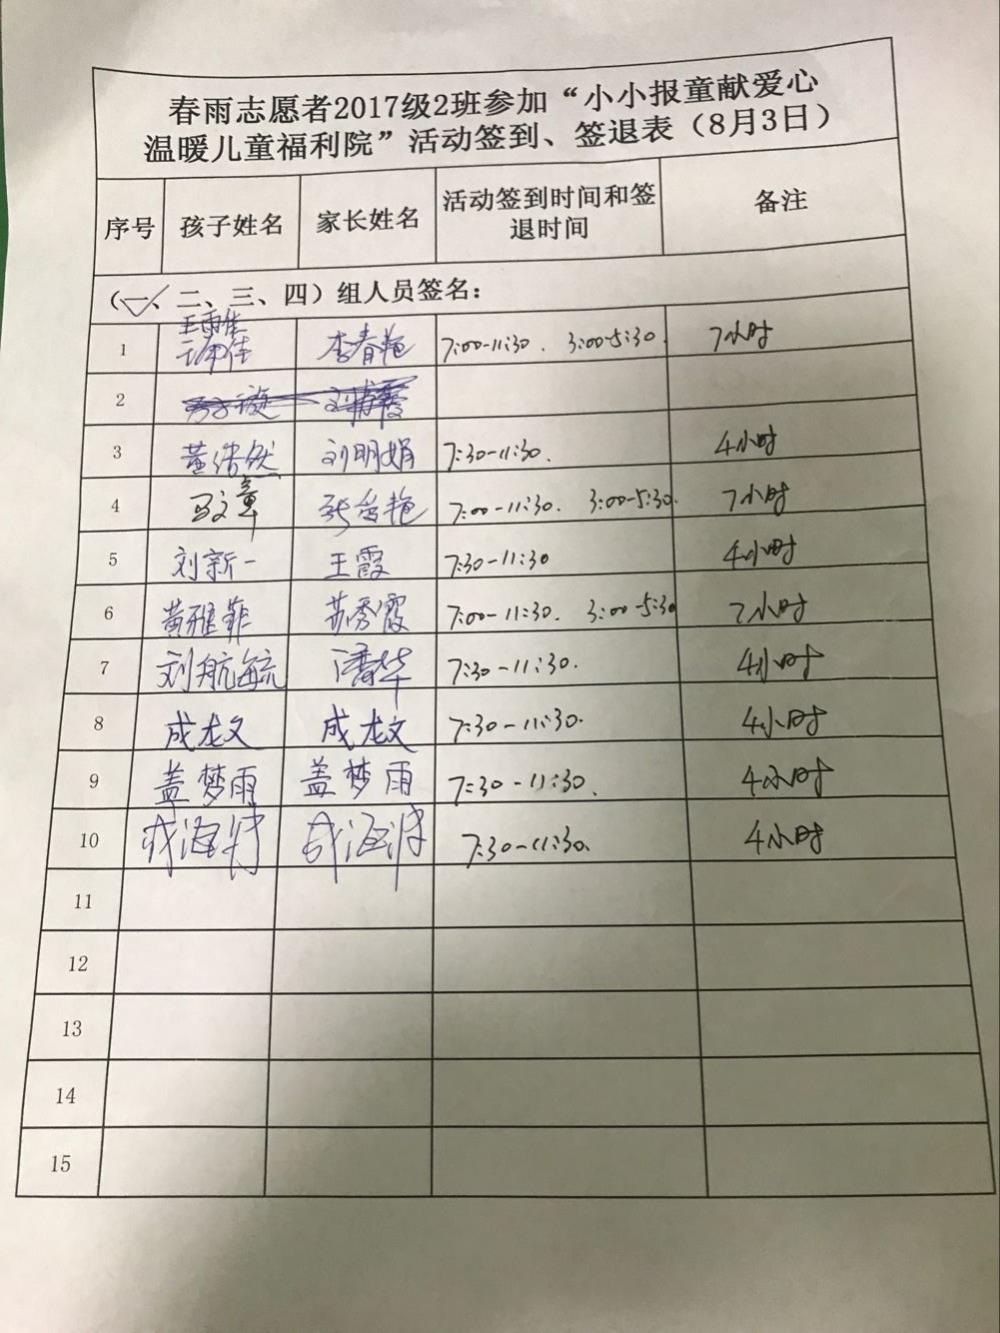 春雨志愿者2017级2班参加“小小报童献爱心
温暖儿童福利院”活动签到、签退表（8月3日）
序号 孩子姓名 家长姓名 活动签到时间和签退时间 备注
（一、二、三、四）组人员签名：
1 李春艳 7:00-11:30. 3:00-5:30 7小时
2
3 黄浩然 刘明娟 7:30-11:30. 4小时
4 7:00-11:30. 3:00-5:30. 7小时
5 刘新一 王霞 7:30-11:30 4小时
6 黄雅菲 苏秀霞 7:00-11:30. 3:00-5:30 7小时
7 刘航毓 潘华 7:30-11:30. 4小时
8 成龙文 成龙文 7:30-11:30. 4小时
9 盖梦雨 盖梦雨 7:30-11:30. 4小时
10 7:30-11:30. 4小时
11
12
13
14
15